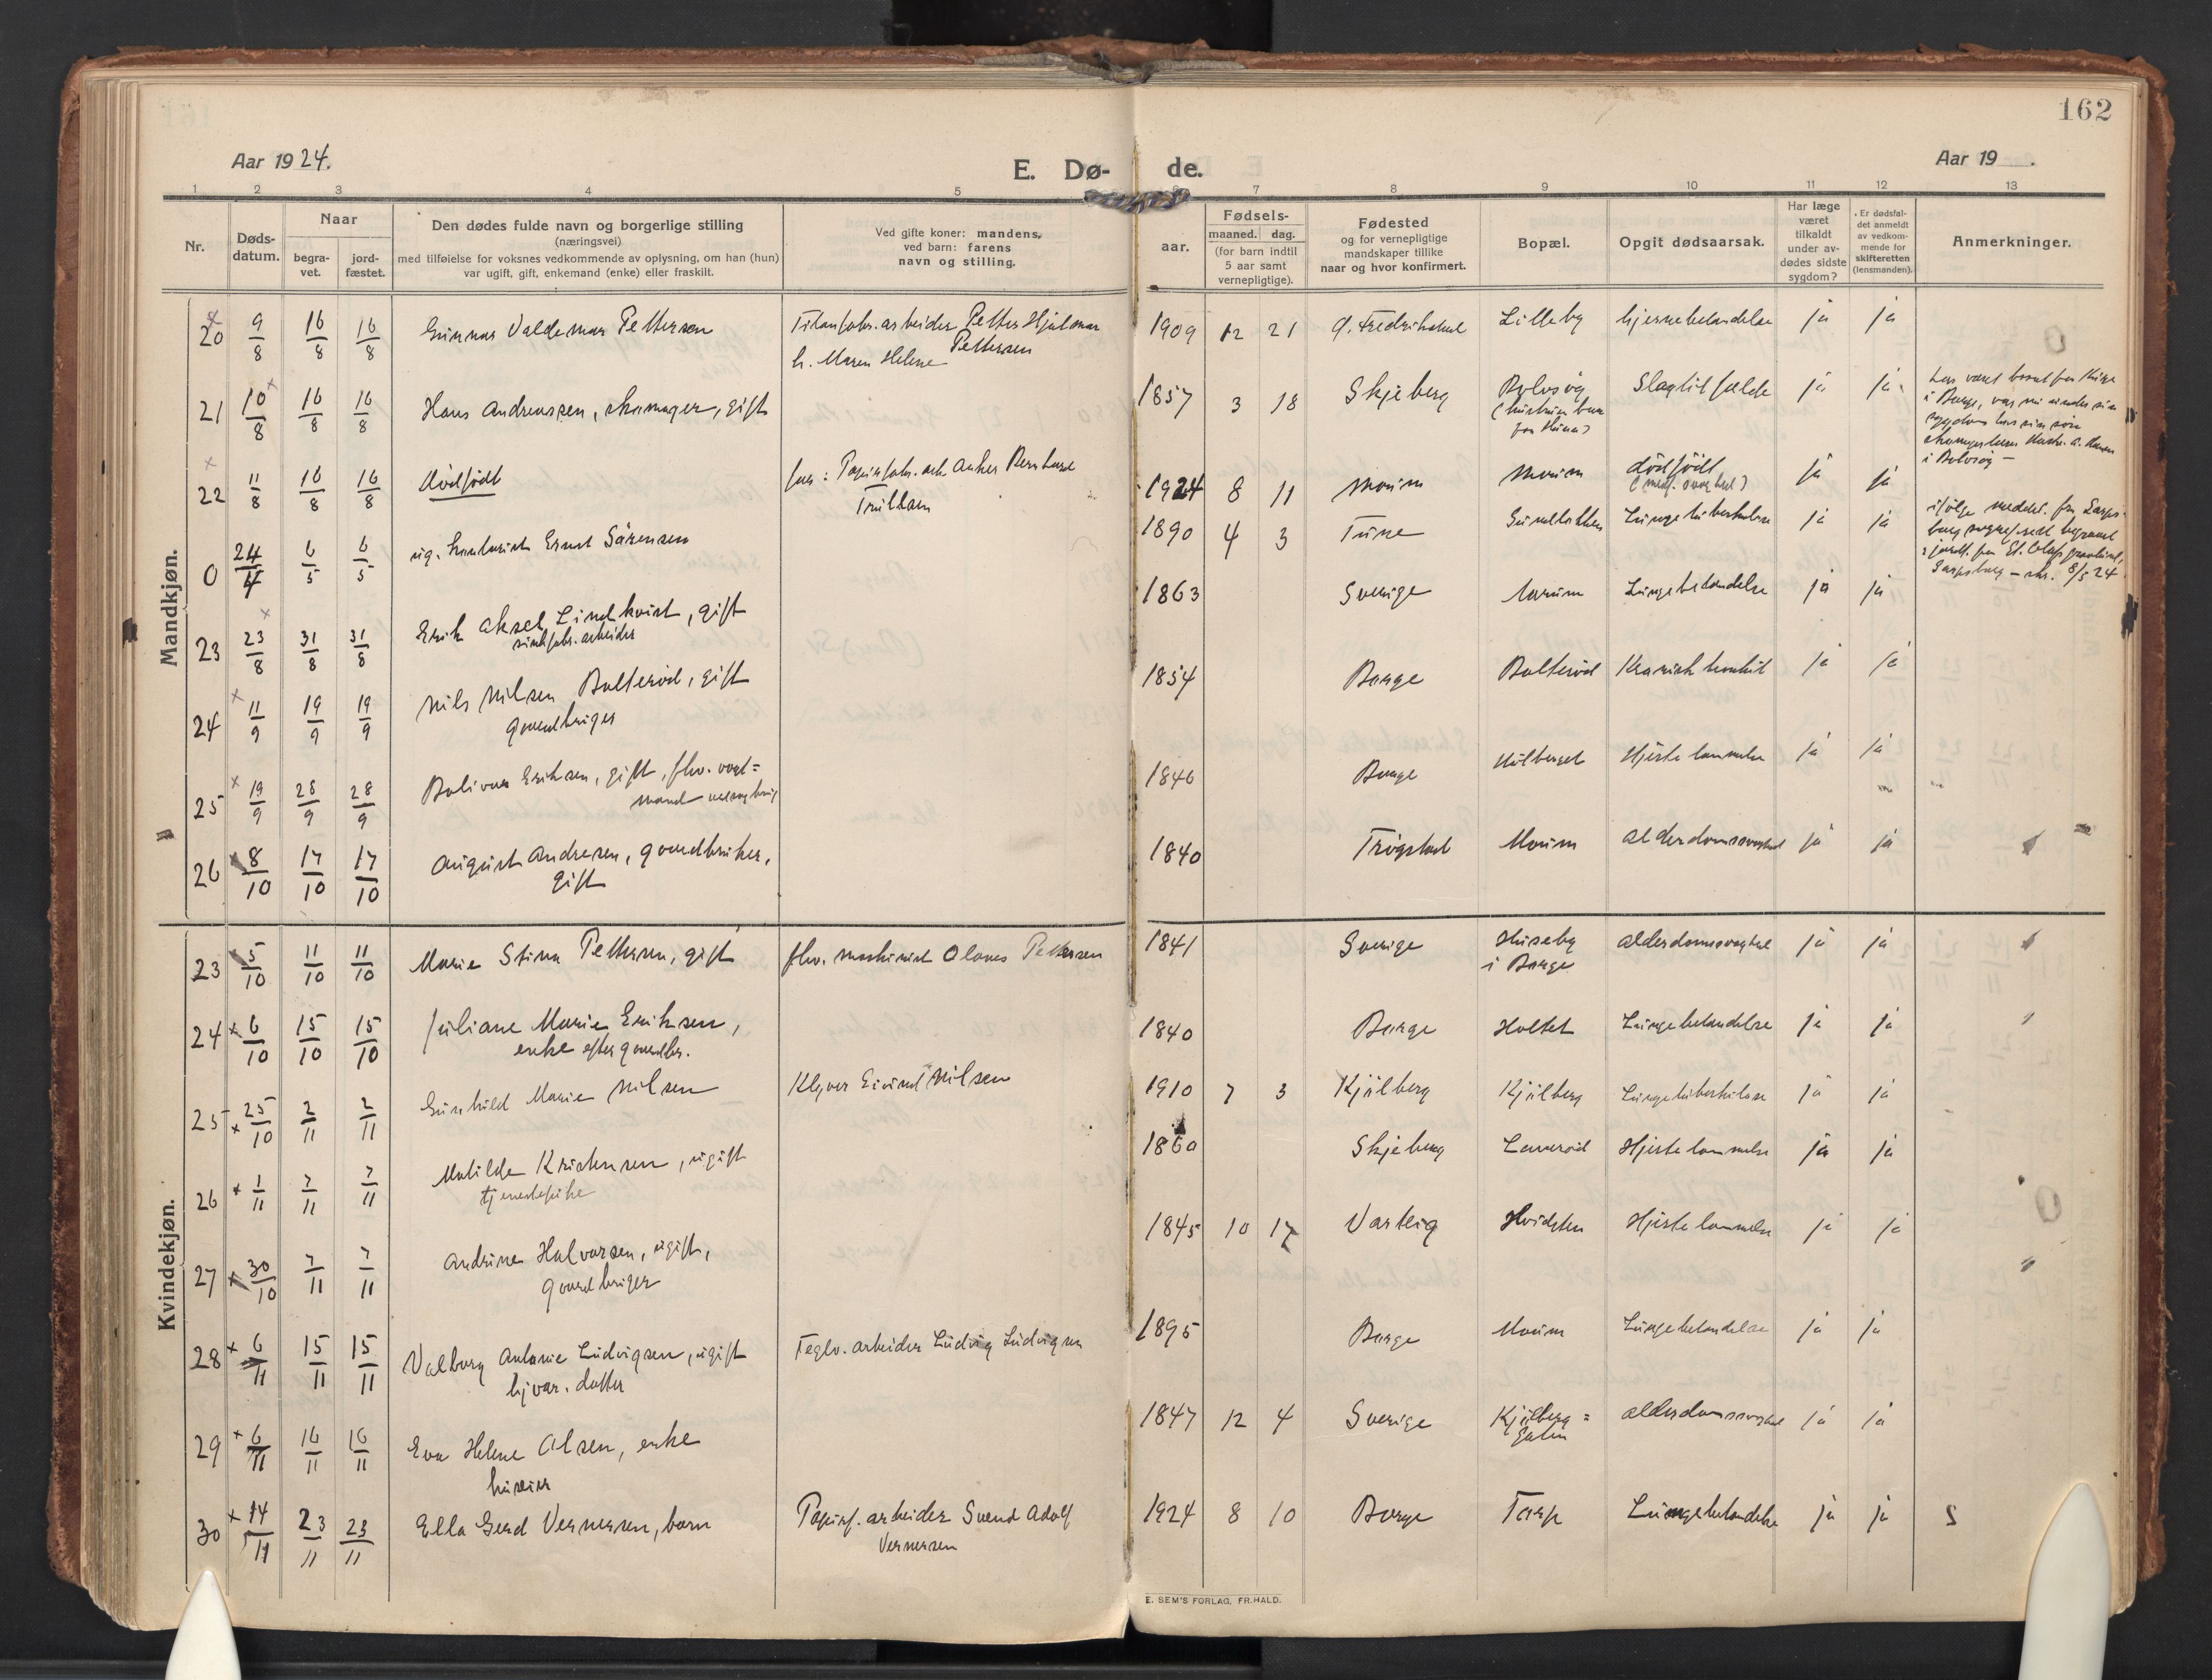 162
Aar 1924.
E. Dø- de.
Aar 19 .
1 2 3 4 5 6 7 8 9 10 11 12 13
Nr.
Døds-
datum.
Naar
begra-
vet.
jord-
fæstet.
Den dødes fulde navn og borgerlige stilling
(næringsvei)
med tilføielse for voksnes vedkommende av oplysning, om han (hun)
var ugift, gift, enkemand (enke) eller fraskilt.
Ved gifte koner: mandens,
ved barn: farens
navn og stilling.
aar.
Fødsels-
maaned. dag.
(for barn indtil
5 aar samt
vernepligtige).
Fødested
og for vernepligtige
mandskaper tillike
naar og hvor konfirmert.
Bopæl.
Opgit dødsaarsak.
Har læge
været
tilkaldt
under av-
dødes sidste
sygdom?
Er dødsfal-
det anmeldt
av vedkom-
mende for
skifteretten
(lensmanden).
Anmerkninger.
Mandkjøn.
20 9/8 16/8 16/8 Gunnar Valdemar Pettersen Titanfabr. arbeider Petter Hjalmar 1909 12 21 Lilleby hjernebetændelse ja ja
h. Maren Helene Pettersen
21 10/8 16/8 16/8 Hans Andreassen, skomager, gift 1857 3 18 Skjeberg Slagtilfælde ja ja
22 11/8 16/8 16/8 dødfødt far: Papirfabr. arb. Anker Bernhard 1924 8 11 Moum Moum dødfødt ja ja
0 24/4 6/5 6/5 ug. kontorist Ernst Sørensen 1890 4 3 Tune Lungetuberkulose ja ja
Sarpsborg – skr. 8/5 24
23 23/8 31/8 31/8 Erik Aksel Lindkvist, gift 1863 Sverige Lungebetændelse ja ja
arbeider
24 11/9 19/9 19/9 Nils Nilsen Bolterød, gift 1854 Borge Bolterød ja ja
gaardbruger
25 19/9 28/9 28/9 Bolivar Eriksen, gift, fhv. 1846 Borge Hjertelammelse ja ja
26 8/10 17/10 17/10 August Andresen, gaardbruker, 1840 Trøgstad Moum Alderdomssvaghed ja ja
gift
Kvindekjøn.
23 5/10 11/10 11/10 Marie Stina Pettersen, gift fhv. maskinist Olaves Pettersen 1841 Sverige Huseby alderdomssvaghed ja ja
i Borge
24 6/10 15/10 15/10 Juliane Marie Eriksen, 1840 Borge Holtet Lungebetændelse ja ja
enke efter gaardbr.
25 25/10 2/11 2/11 Gunhild Marie Nilsen Eivind Nilsen 1910 7 3 Kjølberg Kjølberg Lungetuberkulose ja ja
26 1/11 7/11 7/11 Matilde Kristensen, ugift 1860 Skjeberg Hjertelammelse ja ja
tjenestepike
27 30/10 7/11 7/11 Andrine Halvorsen, ugift, 1845 10 17 Varteig Hvidsten Hjertelammelse ja ja
gaardbruger
28 6/11 15/11 15/11 Valborg Antonie Ludvigsen, ugift Teglv. arbeider Ludvig Ludvigsen 1895 Borge Moum Lungebetændelse ja ja
hjv. datter
29 6/11 16/11 16/11 Eva Helene Olsen, enke 1847 12 4 Sverige Kjølberg= alderdomssvaghed ja ja
30 14/11 23/11 23/11 Ella Gerd Vernersen, barn Papirf. arbeider Svend Adolf 1924 8 10 Borge Torp Lungebetændelse ja ja
Vernersen
E. SEM'S FORLAG, FR.HALD.